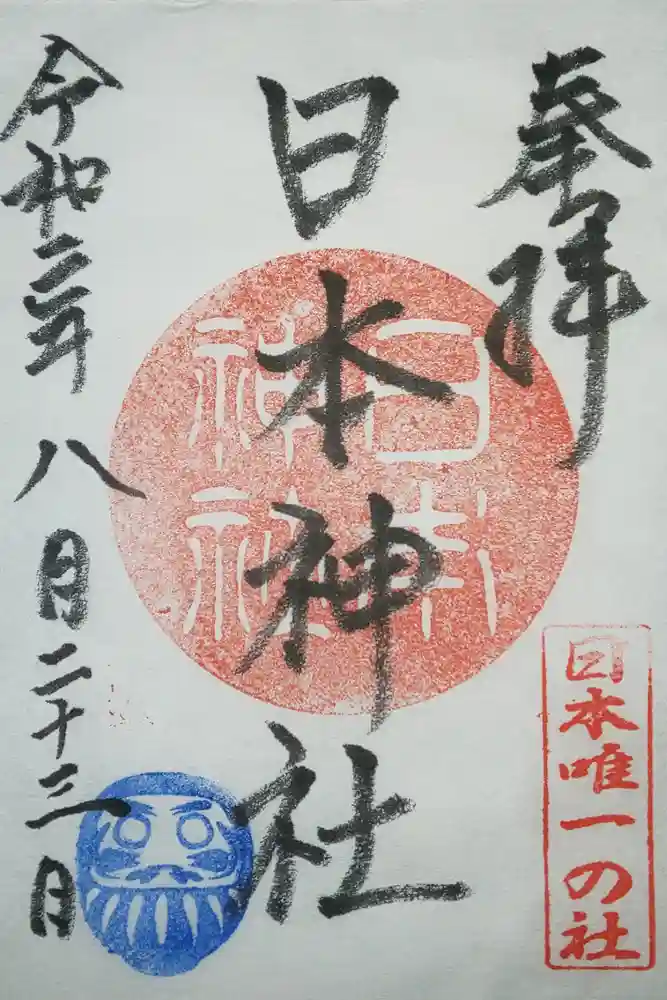 奉拝
日本唯一の社
日本神社
日本
神社
令和二年八月二十三日